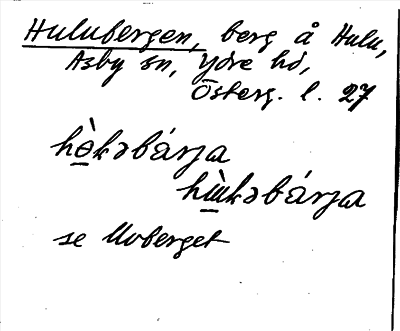 Hulubergen, berg å Hulu,
Asby sn, Ydre hd,
Österg. l. 27
hɵ̀kəbárɟa
hɯ̀kəbárɟa
se Uvberget